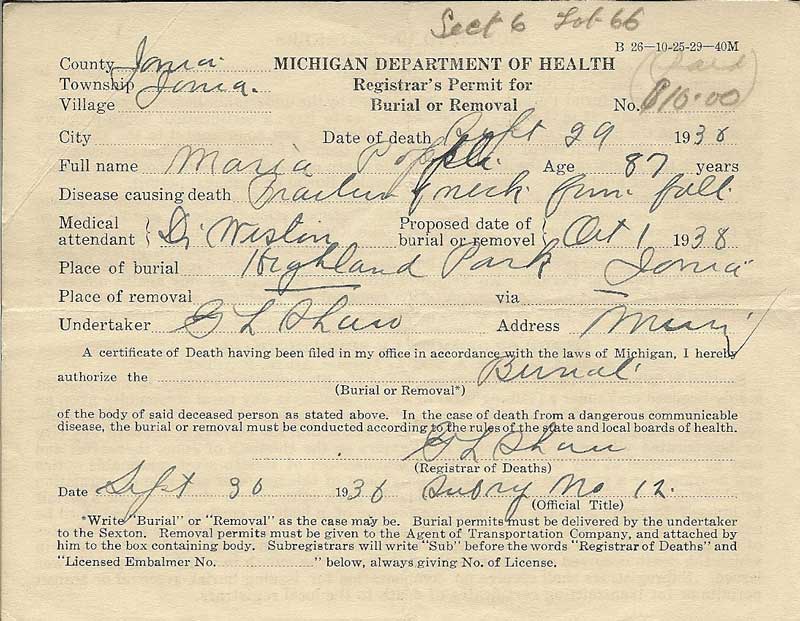 Sect 6 Lot 66
B 26—10-25-29—40M
County Ionia MICHIGAN DEPARTMENT OF HEALTH (Paid)
Township Ionia. Registrar's Permit for
Village Burial or Removal No. $10.00
City Date of death Sept 29 1938
Full name Maria Age 87 years
Disease causing death Fracture of neck from fall.
Medical attendant Dr Weston Proposed date of burial or removel Oct 1 1938
Place of burial Highland Park Ionia
Place of removal via
Undertaker G L Shaw Address Muir
A certificate of Death having been filed in my office in accordance with the laws of Michigan, I hereby
authorize the Burial
(Burial or Removal*)
of the body of said deceased person as stated above. In the case of death from a dangerous communicable
disease, the burial or removal must be conducted according to the rules of the state and local boards of health.
G L Shaw
(Registrar of Deaths)
Date Sept 30 1938 No 12.
(Official Title)
*Write "Burial" or "Removal" as the case may be. Burial permits must be delivered by the undertaker
to the Sexton. Removal permits must be given to the Agent of Transportation Company, and attached by
him to the box containing body. Subregistrars will write "Sub" before the words "Registrar of Deaths" and
"Licensed Embalmer No. " below, always giving No. of License.